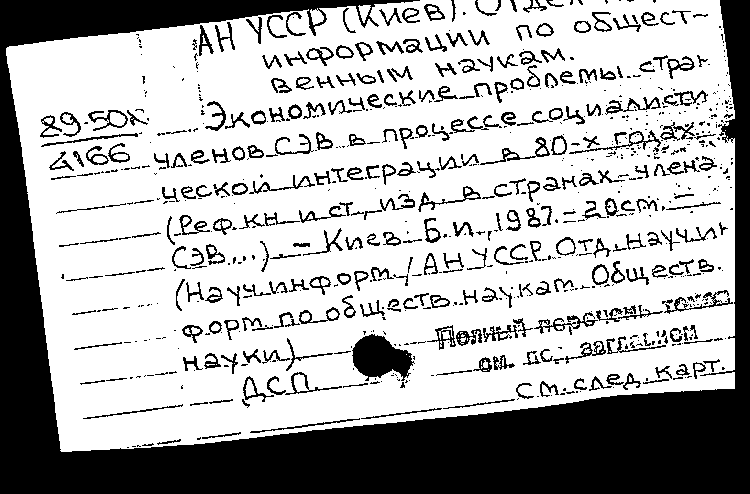 АН УССР (Киев). Отдел
информации по общест-
венным наукам.
Экономические проблемы стран
89-50К
4166
членов СЭВ в процессе социалисти
ческой интеграции в 80-х годах.
(Реф. кн. и ст., изд. в странах-члена
СЭВ...). – Киев: Б.и., 1987. – 20 см. –
(Науч. информ. / АН УССР. Отд. науч. ин
форм. по обществ. наукам. Обществ.
науки).
Полный перечень томов
см. пс., заглавием
ДСП.
см. след. карт.